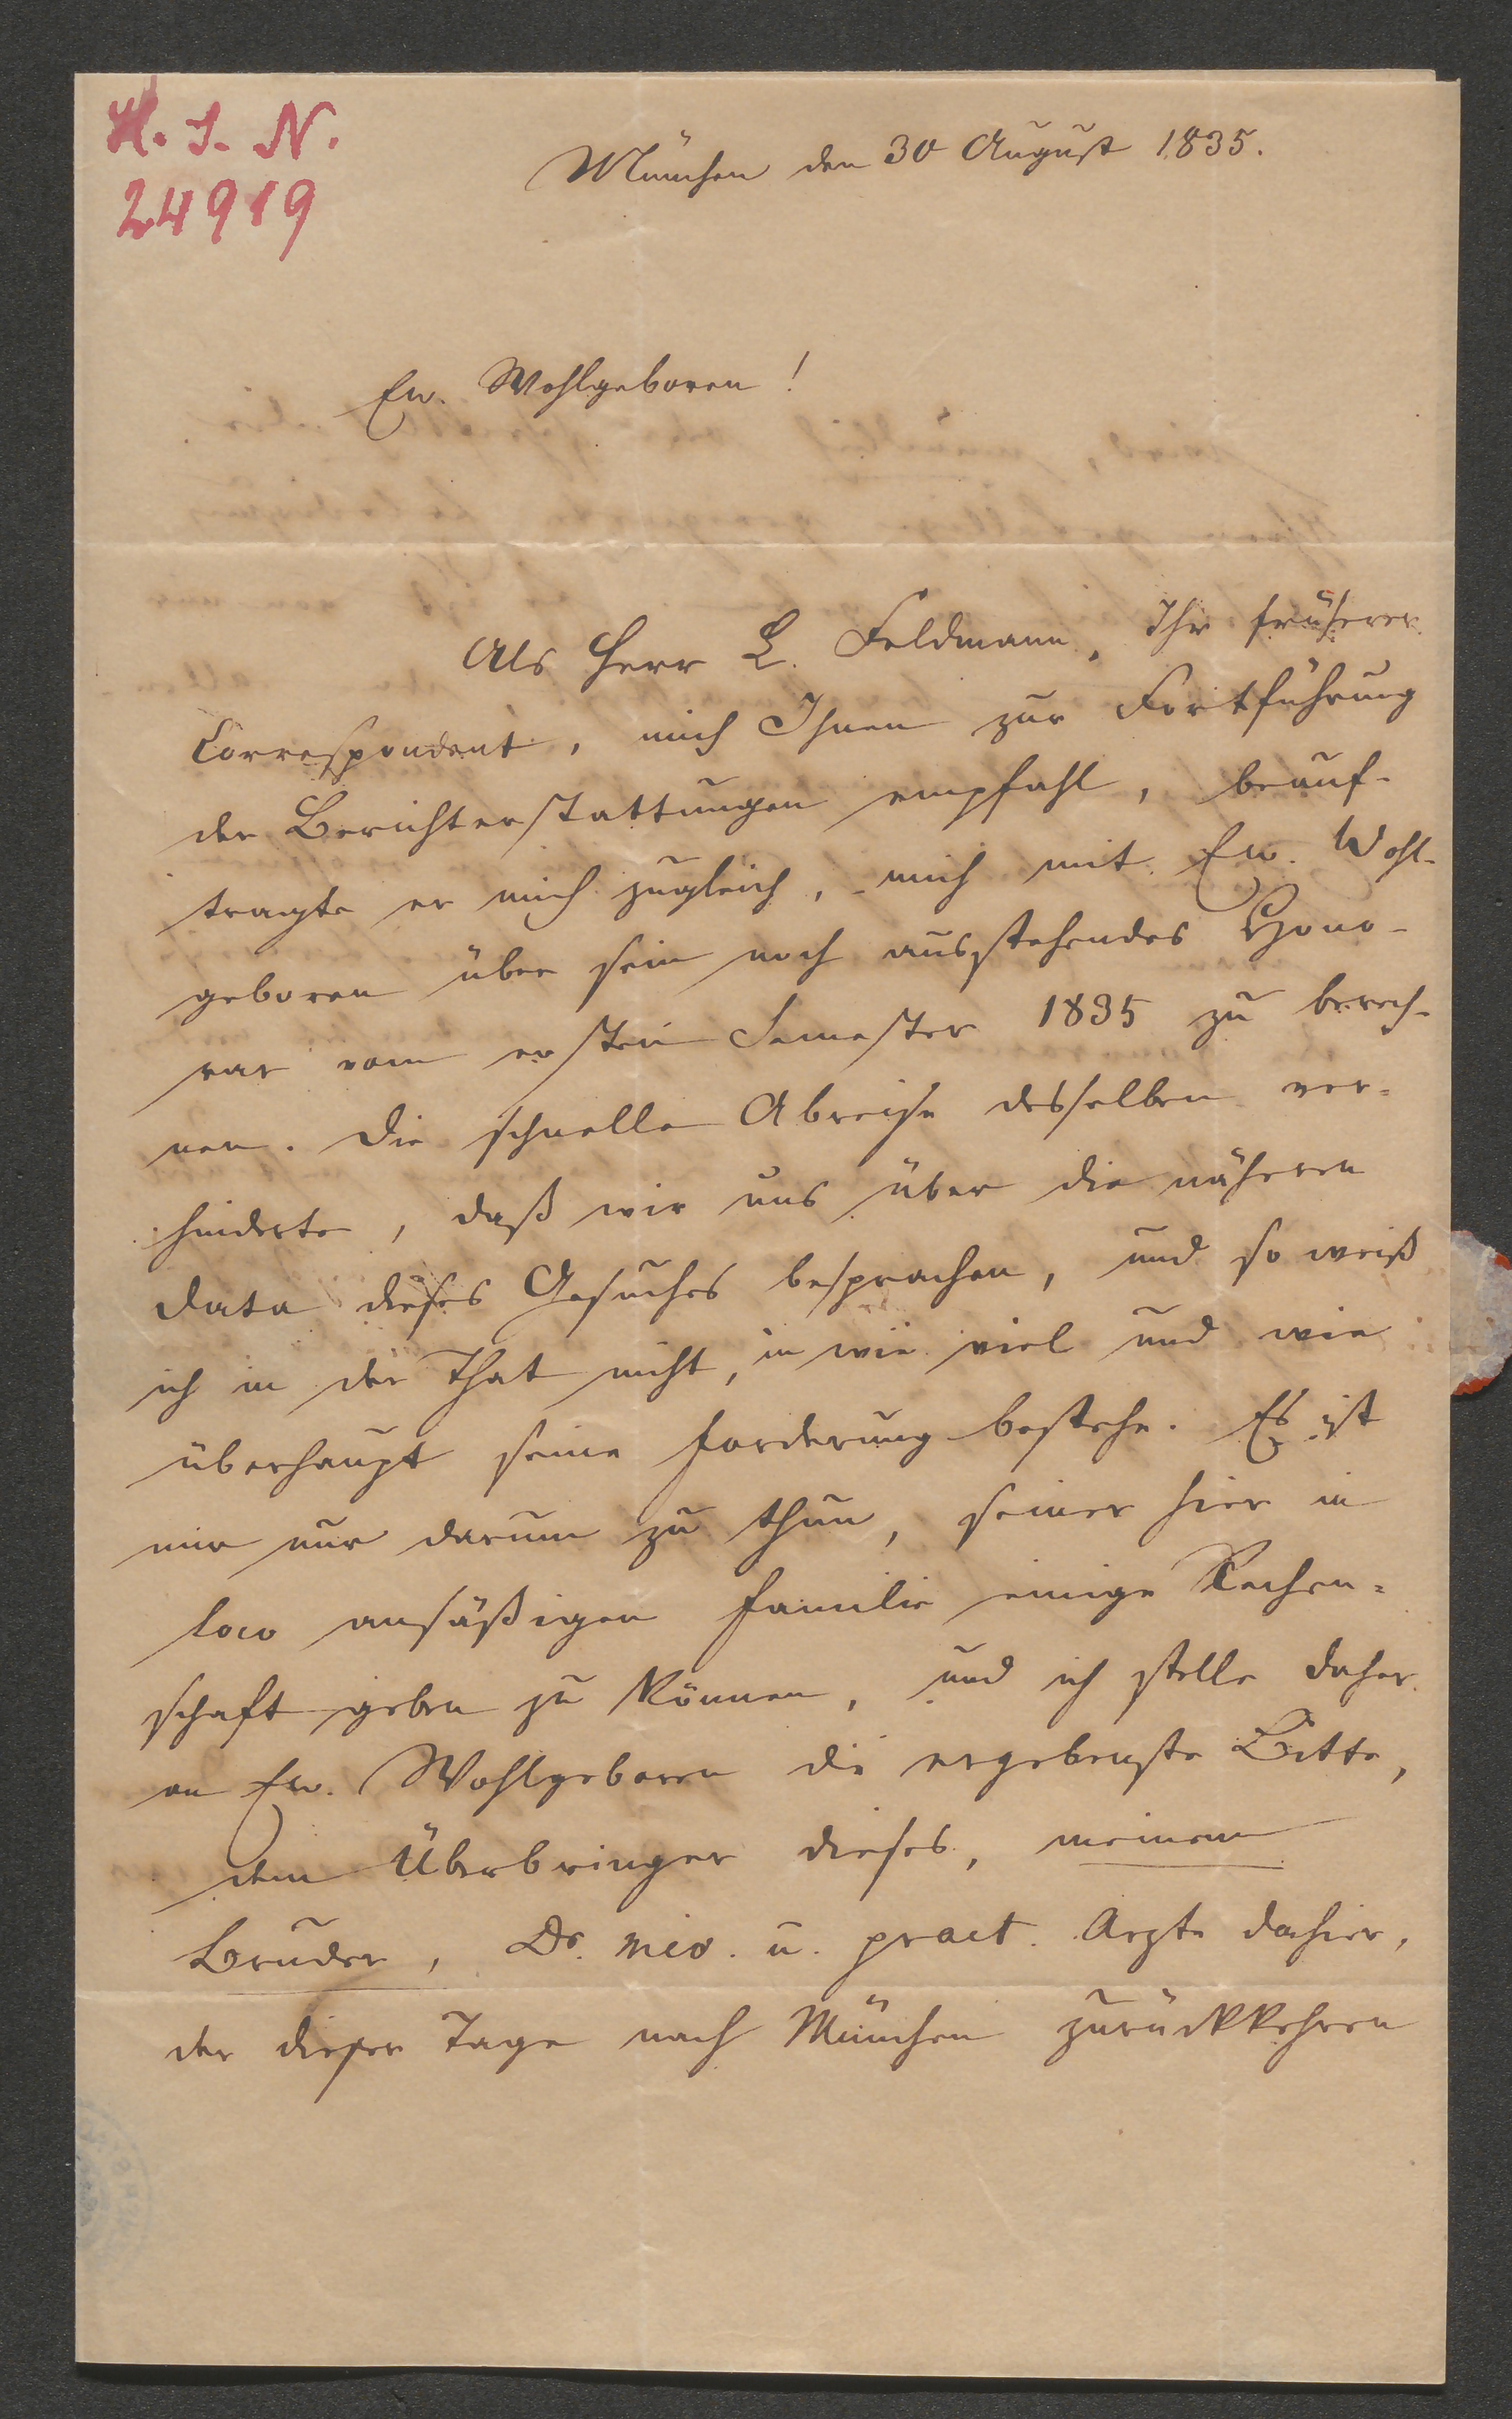 H. I. N.
24919
München den 30 August 1835.
Ew. Wohlgeboren!
Als Herr L. Feldmann, Ihr früherer
Correspondent, mich Ihnen zur Fortführung
der Berichterstattungen empfahl, beauf-
tragte er mich zugleich, mich mit Ew. Wohl-
geboren über sein noch ausstehendes Hono-
rar vom ersten Semester 1835 zu berech-
nen. Die schnelle Abreise desselben ver=
hinderte, daß wir uns über die näheren
Data dieses Gesuches besprachen, und so weiß
ich in der That nicht, in wie viel und wie
überhaupt seine Forderung bestehe. Es ist
mir nur darum zu thun, seiner hier in
loco ansäßigen Familie einige Rechen=
schaft geben zu können, und ich stelle daher
an Ew. Wohlgeboren die ergebenste Bitte,
dem Überbringer dieses, meinem
Bruder, Dr. med. u. pract. Arzte dahier,
der dieser Tage nach München zurückkehren